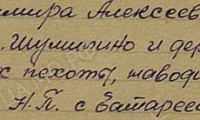 мира Алексеев
. Шумилино и дер
х пехоты, наводч
Н.П. с батареей